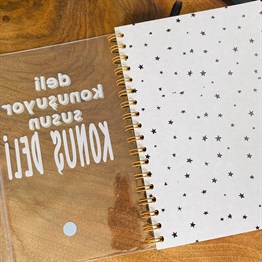 deli
konuşuyor
susun
KONUŞ DELİ